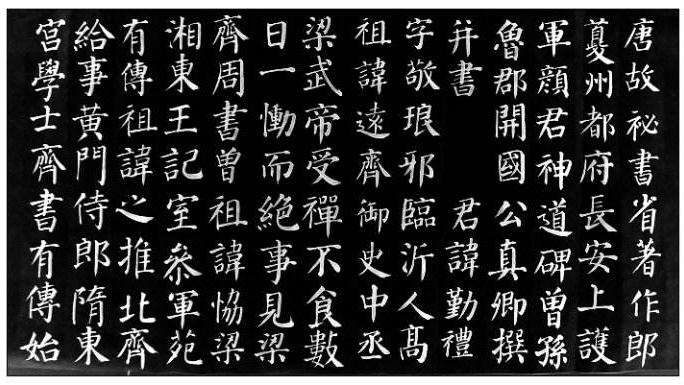 唐故祕書省著作郎
夔州都府長安上護
軍顏君神道碑曾孫
魯郡開國公真卿撰
并書 君諱勤禮
字敬琅邪臨沂人髙
祖諱遠齊御史中丞
梁武帝受禪不食數
日一慟而絕事見梁
齊周書曾祖諱恊梁
湘東王記室叅軍苑
有傳祖諱之推北齊
給事黃門侍郎隋東
宮學士齊書有傳始